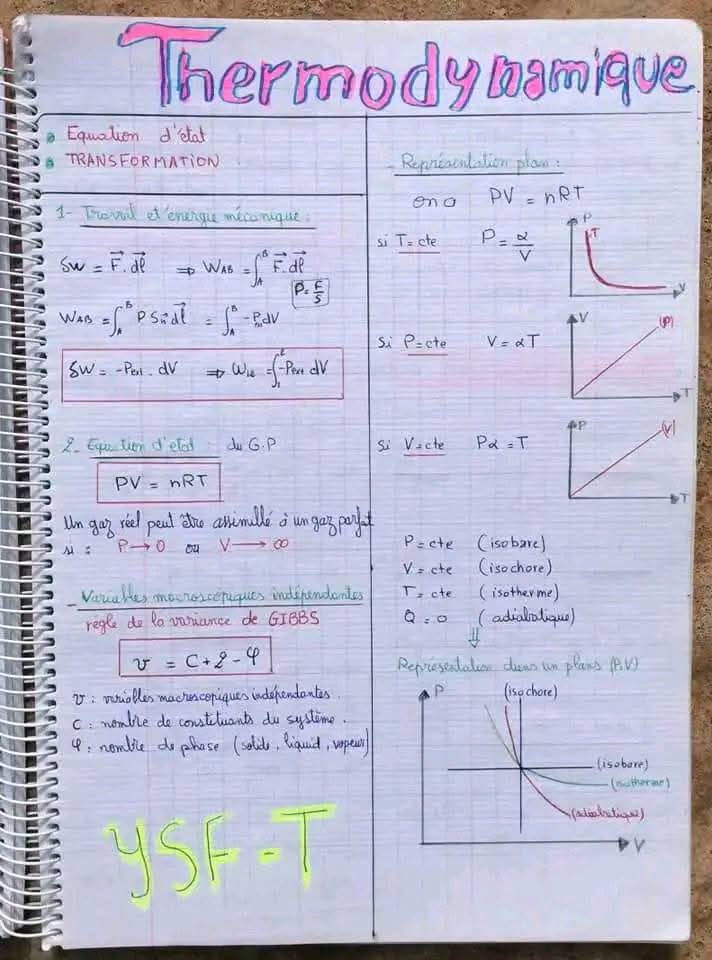 Thermodynamique
• Equation d'état
• TRANSFORMATION
1- Travail et énergie mécanique :
δW = F⃗.dl⃗ ⇒ W_AB = ∫_A^B F⃗.dl⃗
P = F/S
W_AB = ∫_A^B P S n⃗ dl⃗ = ∫_A^B -P_ext dV
δW = -P_ext . dV ⇒ W_12 = ∫_1^2 -P_ext dV
2- Equation d'etat : du G.P
PV = nRT
Un gaz réel peut être assimillé à un gaz parfait
si : P → 0 ou V → ∞
- Variables macroscopiques indépendantes
regle de la variance de GIBBS
v = C + 2 - φ
v : variables macroscopiques indépendantes.
C : nombre de constituants du système.
φ : nombre de phase (solide, liquid, vapeur)
YSF-T
- Représentation plan :
on a PV = nRT
si T = cte P = α/V
P
T
V
Si P = cte V = αT
V
(P)
T
si V = cte Pα = T
P
(V)
T
P = cte (isobare)
V = cte (isochore)
T = cte (isotherme)
Q = 0 (adiabatique)
⇓
Représentation dans un plans (P,V)
P
(isochore)
(isobare)
(isotherme)
(adiabatique)
V